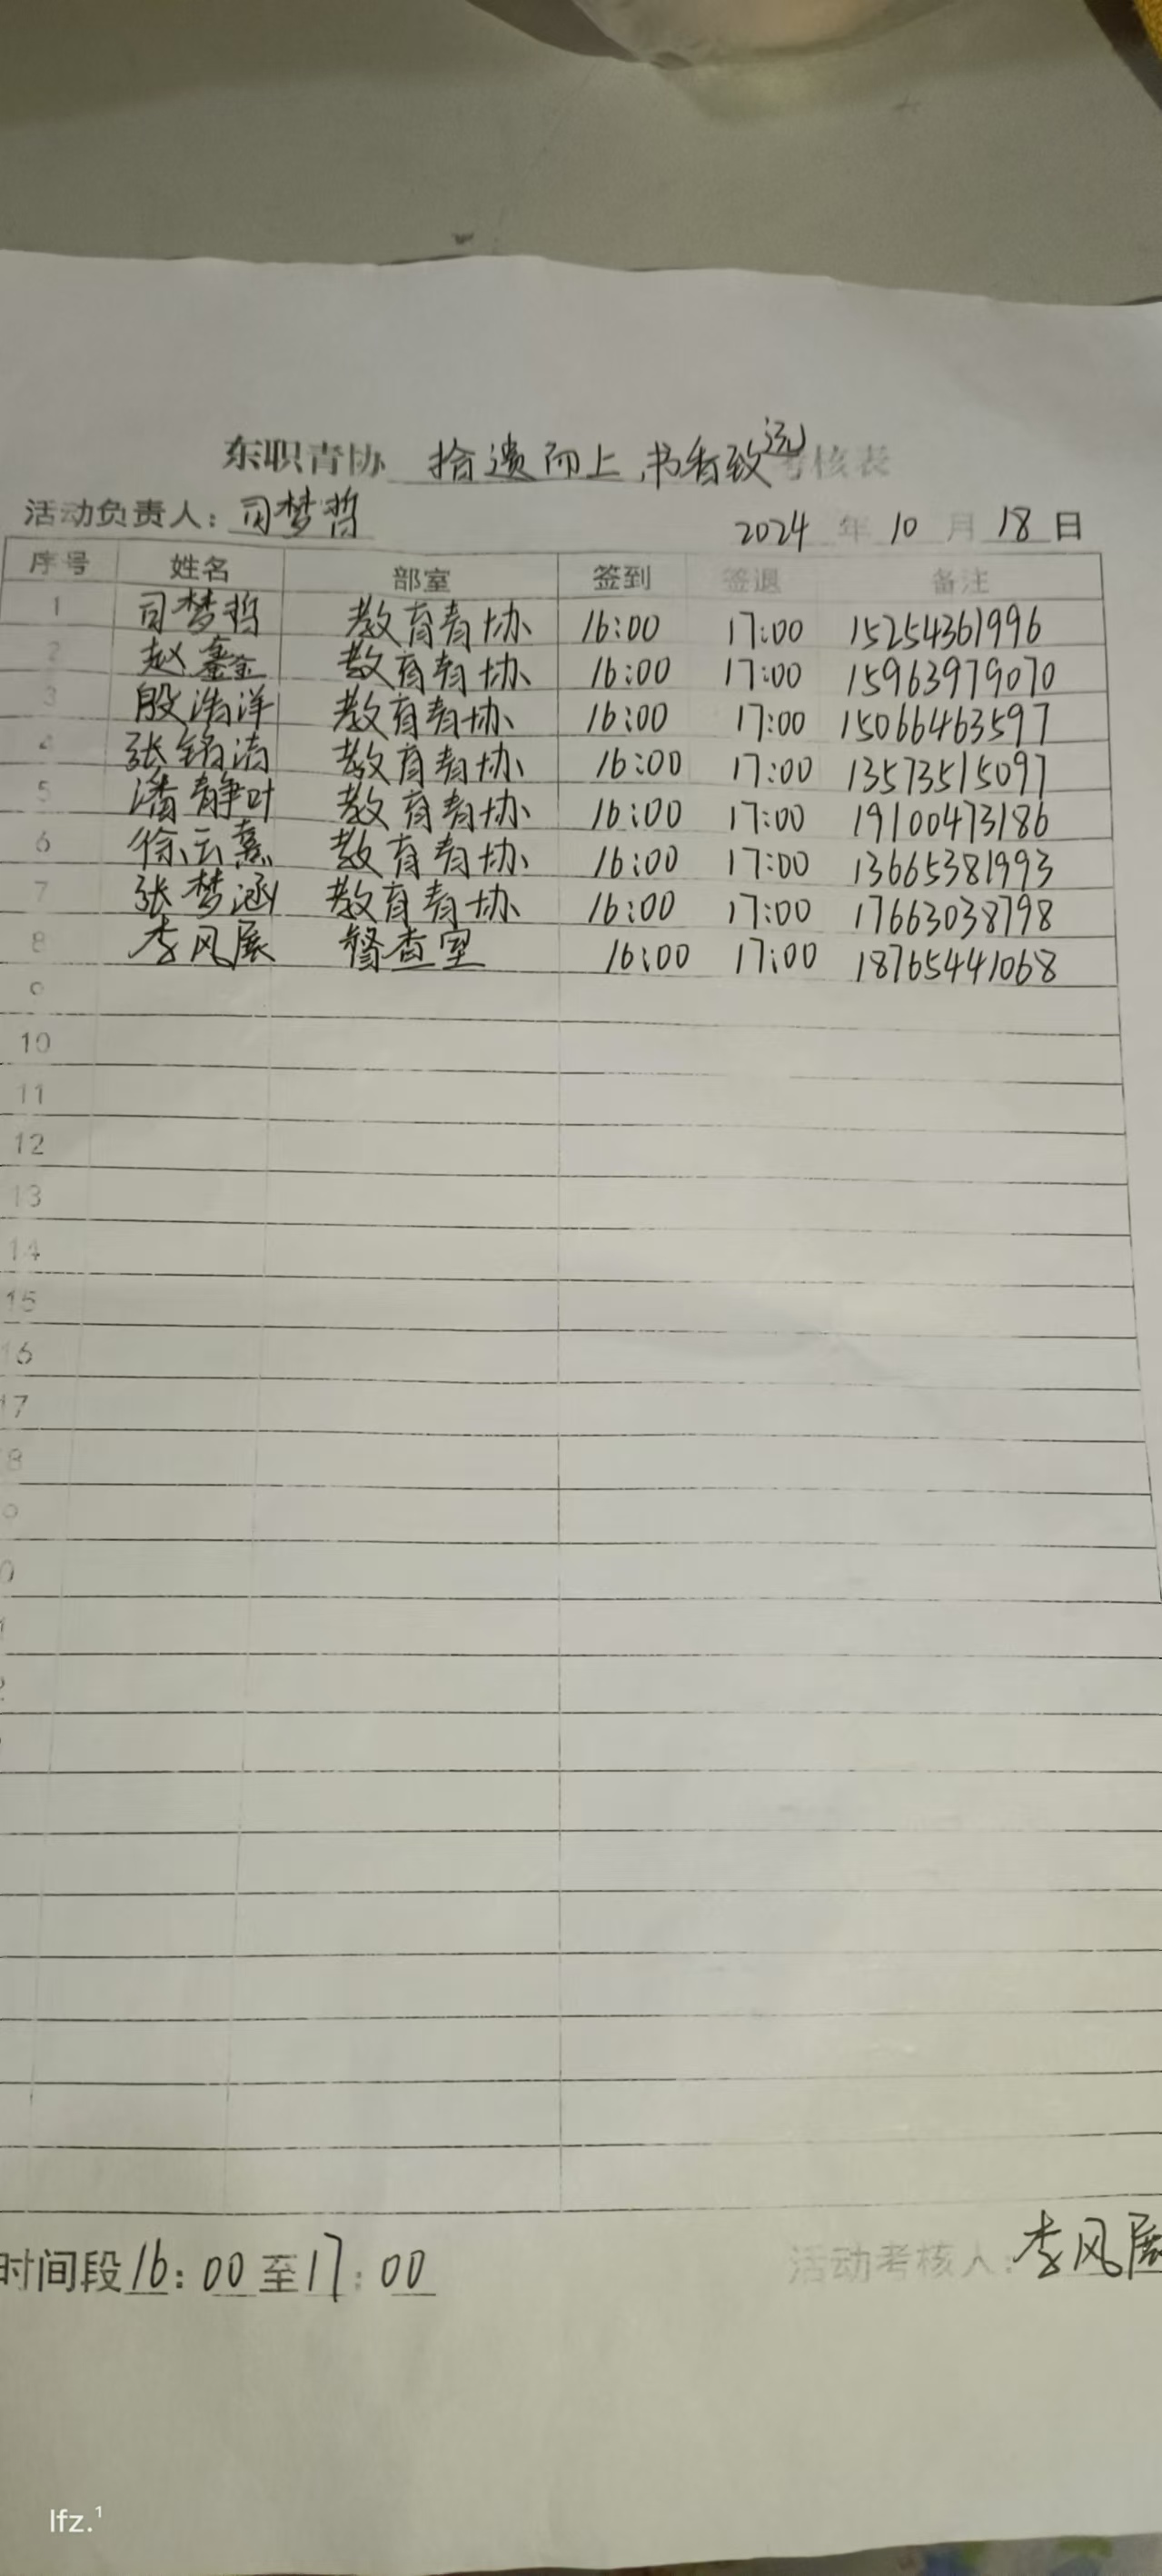 东职青协 拾遗而上,书香致远考核表
活动负责人:司梦哲 2024 年 10 月 18 日
序号 姓名 部室 签到 签退 备注
1 司梦哲 教育青协 16:00 17:00 15254361996
2 赵鑫 教育青协 16:00 17:00 15963979070
3 殷浩洋 教育青协 16:00 17:00 15066463597
4 张铭涛 教育青协 16:00 17:00 13573515097
5 潘静叶 教育青协 16:00 17:00 19100473186
6 徐云熹 教育青协 16:00 17:00 13665381993
7 张梦涵 教育青协 16:00 17:00 17663038798
8 李风展 督查室 16:00 17:00 18765441068
9
10
11
12
13
14
15
16
17
8
时间段16:00至17:00 活动考核人:李风展
lfz.¹